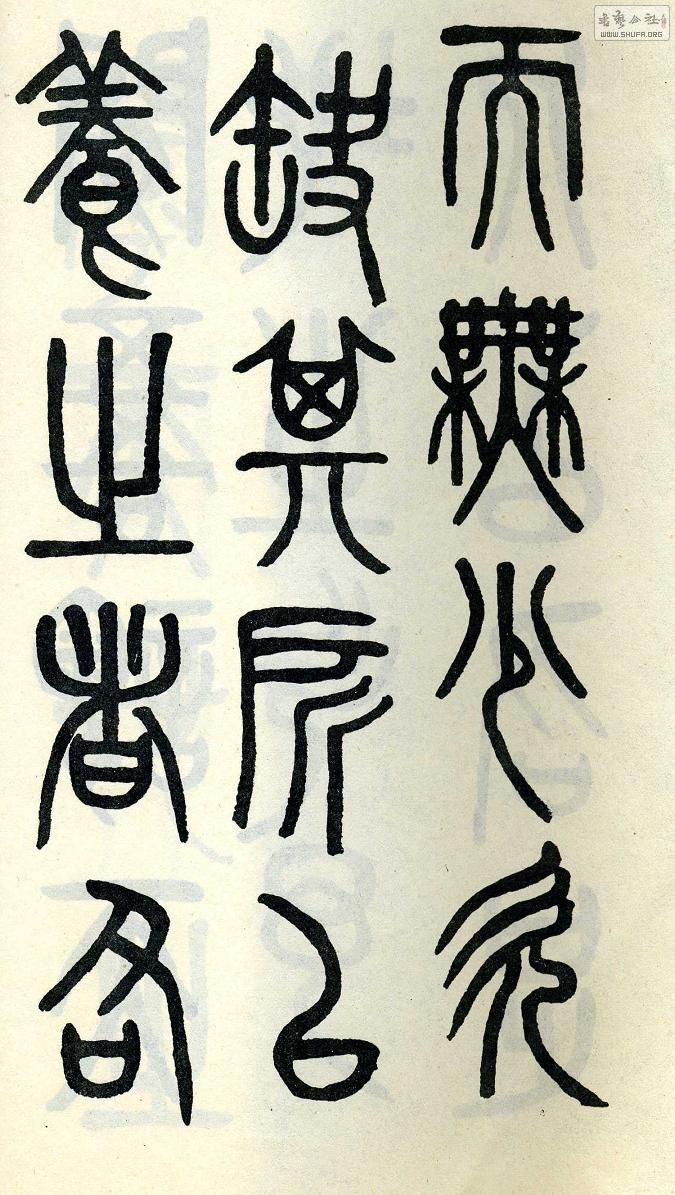 而無少欠
缺其所以
養之者各
書藝公社
WWW.SHUFA.ORG